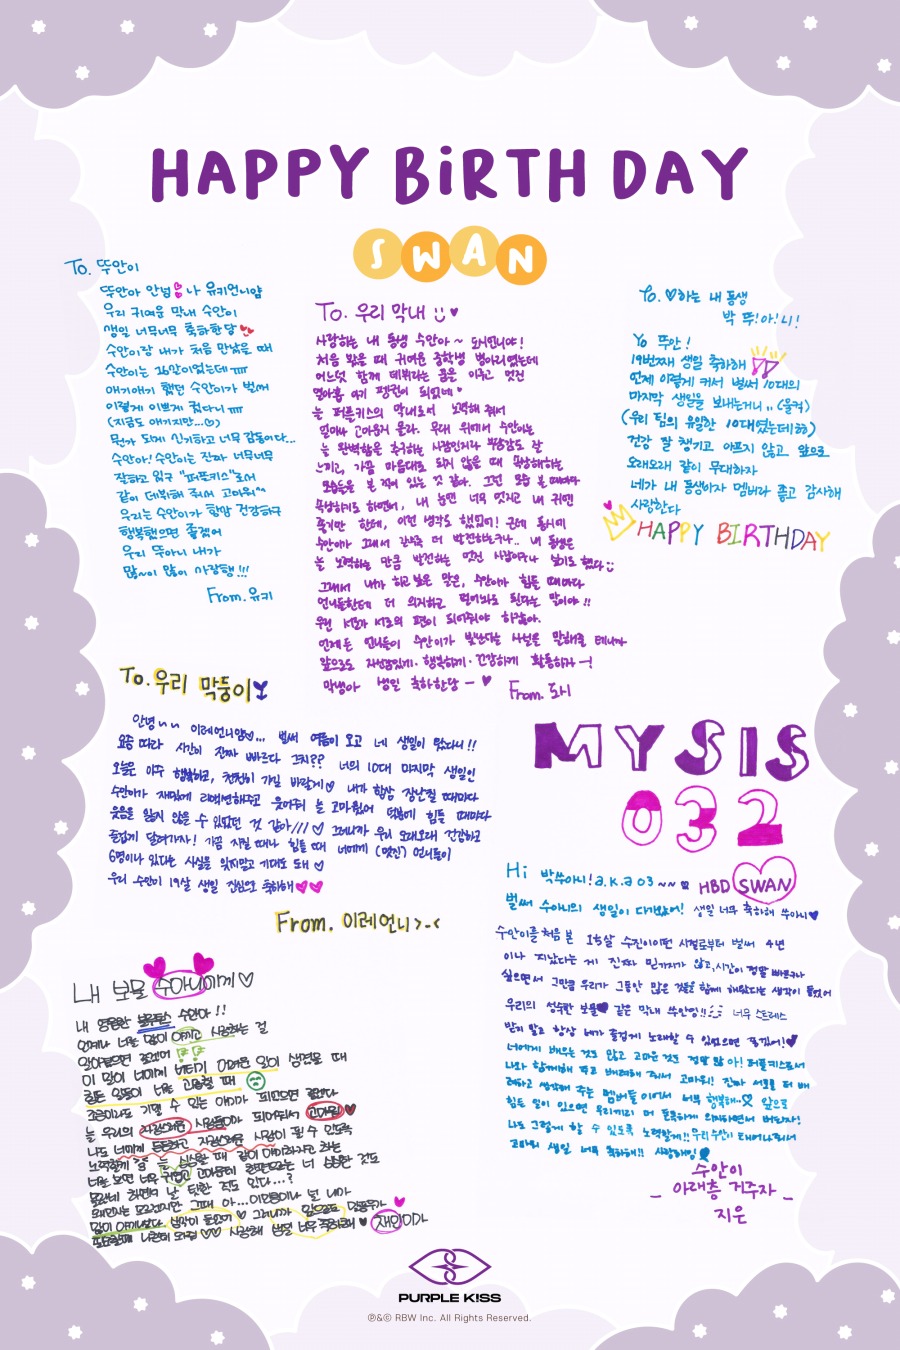 HAPPY BiRTH DAY
SWAN
To. 뚜안이
뚜안아 안녕 나 유키언니얌
우리 귀여운 막내 수안이
생일 너무너무 축하한당
수안이랑 내가 처음 만났을 때
수안이는 16살이었는데 ㅠㅠ
애기애기 했던 수안이가 벌써
이렇게 이쁘게 컸다니 ㅠㅠ
(지금도 애기지만...♡)
뭔가 되게 신기하고 너무 감동이다...
수안아! 수안이는 진짜 너무너무
잘하고 있구 "퍼플키스"로서
같이 데뷔해 줘서 고마워^^
우리는 수안이가 항상 건강하구
행복했으면 좋겠어
우리 뚜아니 내가
많~이 많이 사랑행!!!
From. 유키
To. 우리 막내 ♥
사랑하는 내 동생 수안아 ~ 도시언니야!
처음 봤을 때 귀여운 중학생 병아리였는데
어느덧 함께 데뷔라는 꿈을 이루고 멋진
늘 퍼플키스의 막내로서 노력해 줘서
얼마나 고마운지 몰라. 무대 위에서 수안이는
늘 완벽함을 추구하는 사람인지라 부담감도 잘
느끼고, 가끔 마음대로 되지 않을 때 속상해하는
모습들을 본 적이 있는 것 같아. 그런 모습 볼 때마다
속상하기도 하면서, 내 눈엔 너무 멋지고 내 귀엔
좋기만 한데, 이런 생각도 했었어! 근데 동시에
수안아 그래서 갈수록 더 발전하는구나.. 내 동생은
늘 노력하는 만큼 발전하는 멋진 사람이구나 싶기도 했다
그래서 내가 하고싶은 말은, 수안아 힘들 때마다
언니들한테 더 의지하고 털어놔도 된다는 말이야!!
우린 서로가 서로의 편이 되어줘야 하잖아.
언제든 언니들이 수안이가 빛난다는 사실을 말해줄 테니까
앞으로도 자신감있게·행복하게·건강하게 활동하자 ㅡ!
막냉아 생일 축하한당 ㅡ ♥
From. 도시
To. ♡하는 내 동생
박 뚜!아!니!
Yo 뚜안!
19번째 생일 축하해
언제 이렇게 커서 벌써 10대의
마지막 생일을 보내는거니.. (울컥)
(우리 팀의 유일한 10대였는데ㅎㅎ)
건강 잘 챙기고 아프지 않고 앞으로
오래오래 같이 무대하자
네가 내 동생이자 멤버라 좋고 감사해
사랑한다
HAPPY BIRTHDAY
To. 우리 막둥이
안녕ㅅㅅ 이레언니얌♡... 벌써 여름이 오고 네 생일이 왔다니!!
요즘 따라 시간이 진짜 빠르다 그치?? 너의 10대 마지막 생일인
오늘은 아주 행복하고, 천천히 가길 바랄게♡ 내가 항상 장난칠 때마다
수안이가 재밌게 리액션해주고 웃어줘 늘 고마웠어 덕분에 힘들 때마다
웃음을 잃지 않을 수 있었던 것 같아///♡ 그러니까 우리 오래오래 건강하고
즐겁게 달려가자! 가끔 지칠 때나 힘들 때 너에게 (멋진) 언니들이
6명이나 있다는 사실을 잊지말고 기대도 돼 ♡
우리 수안이 19살 생일 진심으로 축하해♥♥
From. 이레언니 >-<
MY SIS
032
Hi 박쑤아니! a.k.a 03 ~~ HBD SWAN
벌써 수아니의 생일이 다가왔어! 생일 너무 축하해 쑤아니♥
수안이를 처음 본 15살 수진이이던 시절로부터 벌써 4년
이나 지났다는 게 진짜 믿기지가 않고, 시간이 정말 빠르구나
싶으면서 그만큼 우리가 그동안 많은 것을 함께 해왔다는 생각이 들었어
우리의 성숙한 보물♥ 같은 막내 쑤안잉!! 너무 스트레스
받지 말고 항상 네가 즐겁게 노래할 수 있었으면 좋겠어!♥
너에게 배우는 것도 많고 고마운 것도 정말 많아! 퍼플키스로서
나와 함께해 주고 배려해 줘서 고마워! 진짜 서로를 더 배
려하고 생각해 주는 멤버들이어서 너무 행복해.. 앞으로
힘든 일이 있으면 우리끼리 더 돈독하게 의지하면서 버티자!
나도 그렇게 할 수 있도록 노력할게!! 우리 수안이 태어나줘서
고마워 생일 너무 축하해!! 사랑해잉
수안이
_ 아래층 거주자 _
지은
내 보물 수아니에게♡
내 영원한 수안아!!
언제나 너를 많이 아끼고 사랑하는 걸
알아줬으면 좋겠어
이 말이 너에게 버티기 어려운 일이 생겼을 때
힘든 일들이 너를 괴롭힐 때
늘 우리의 자랑스러운 사람들이 되어줘서 고마워♥
나도 너에게 든든하고 자랑스러운 사람이 될 수 있도록
노력할게
많이 아끼나보다. 생각이 들었어 ♥ 그러니까 앞으로도
사랑해 생일 너무 축하해 ♥ 재인이가
PURPLE K!SS
℗&© RBW Inc. All Rights Reserved.